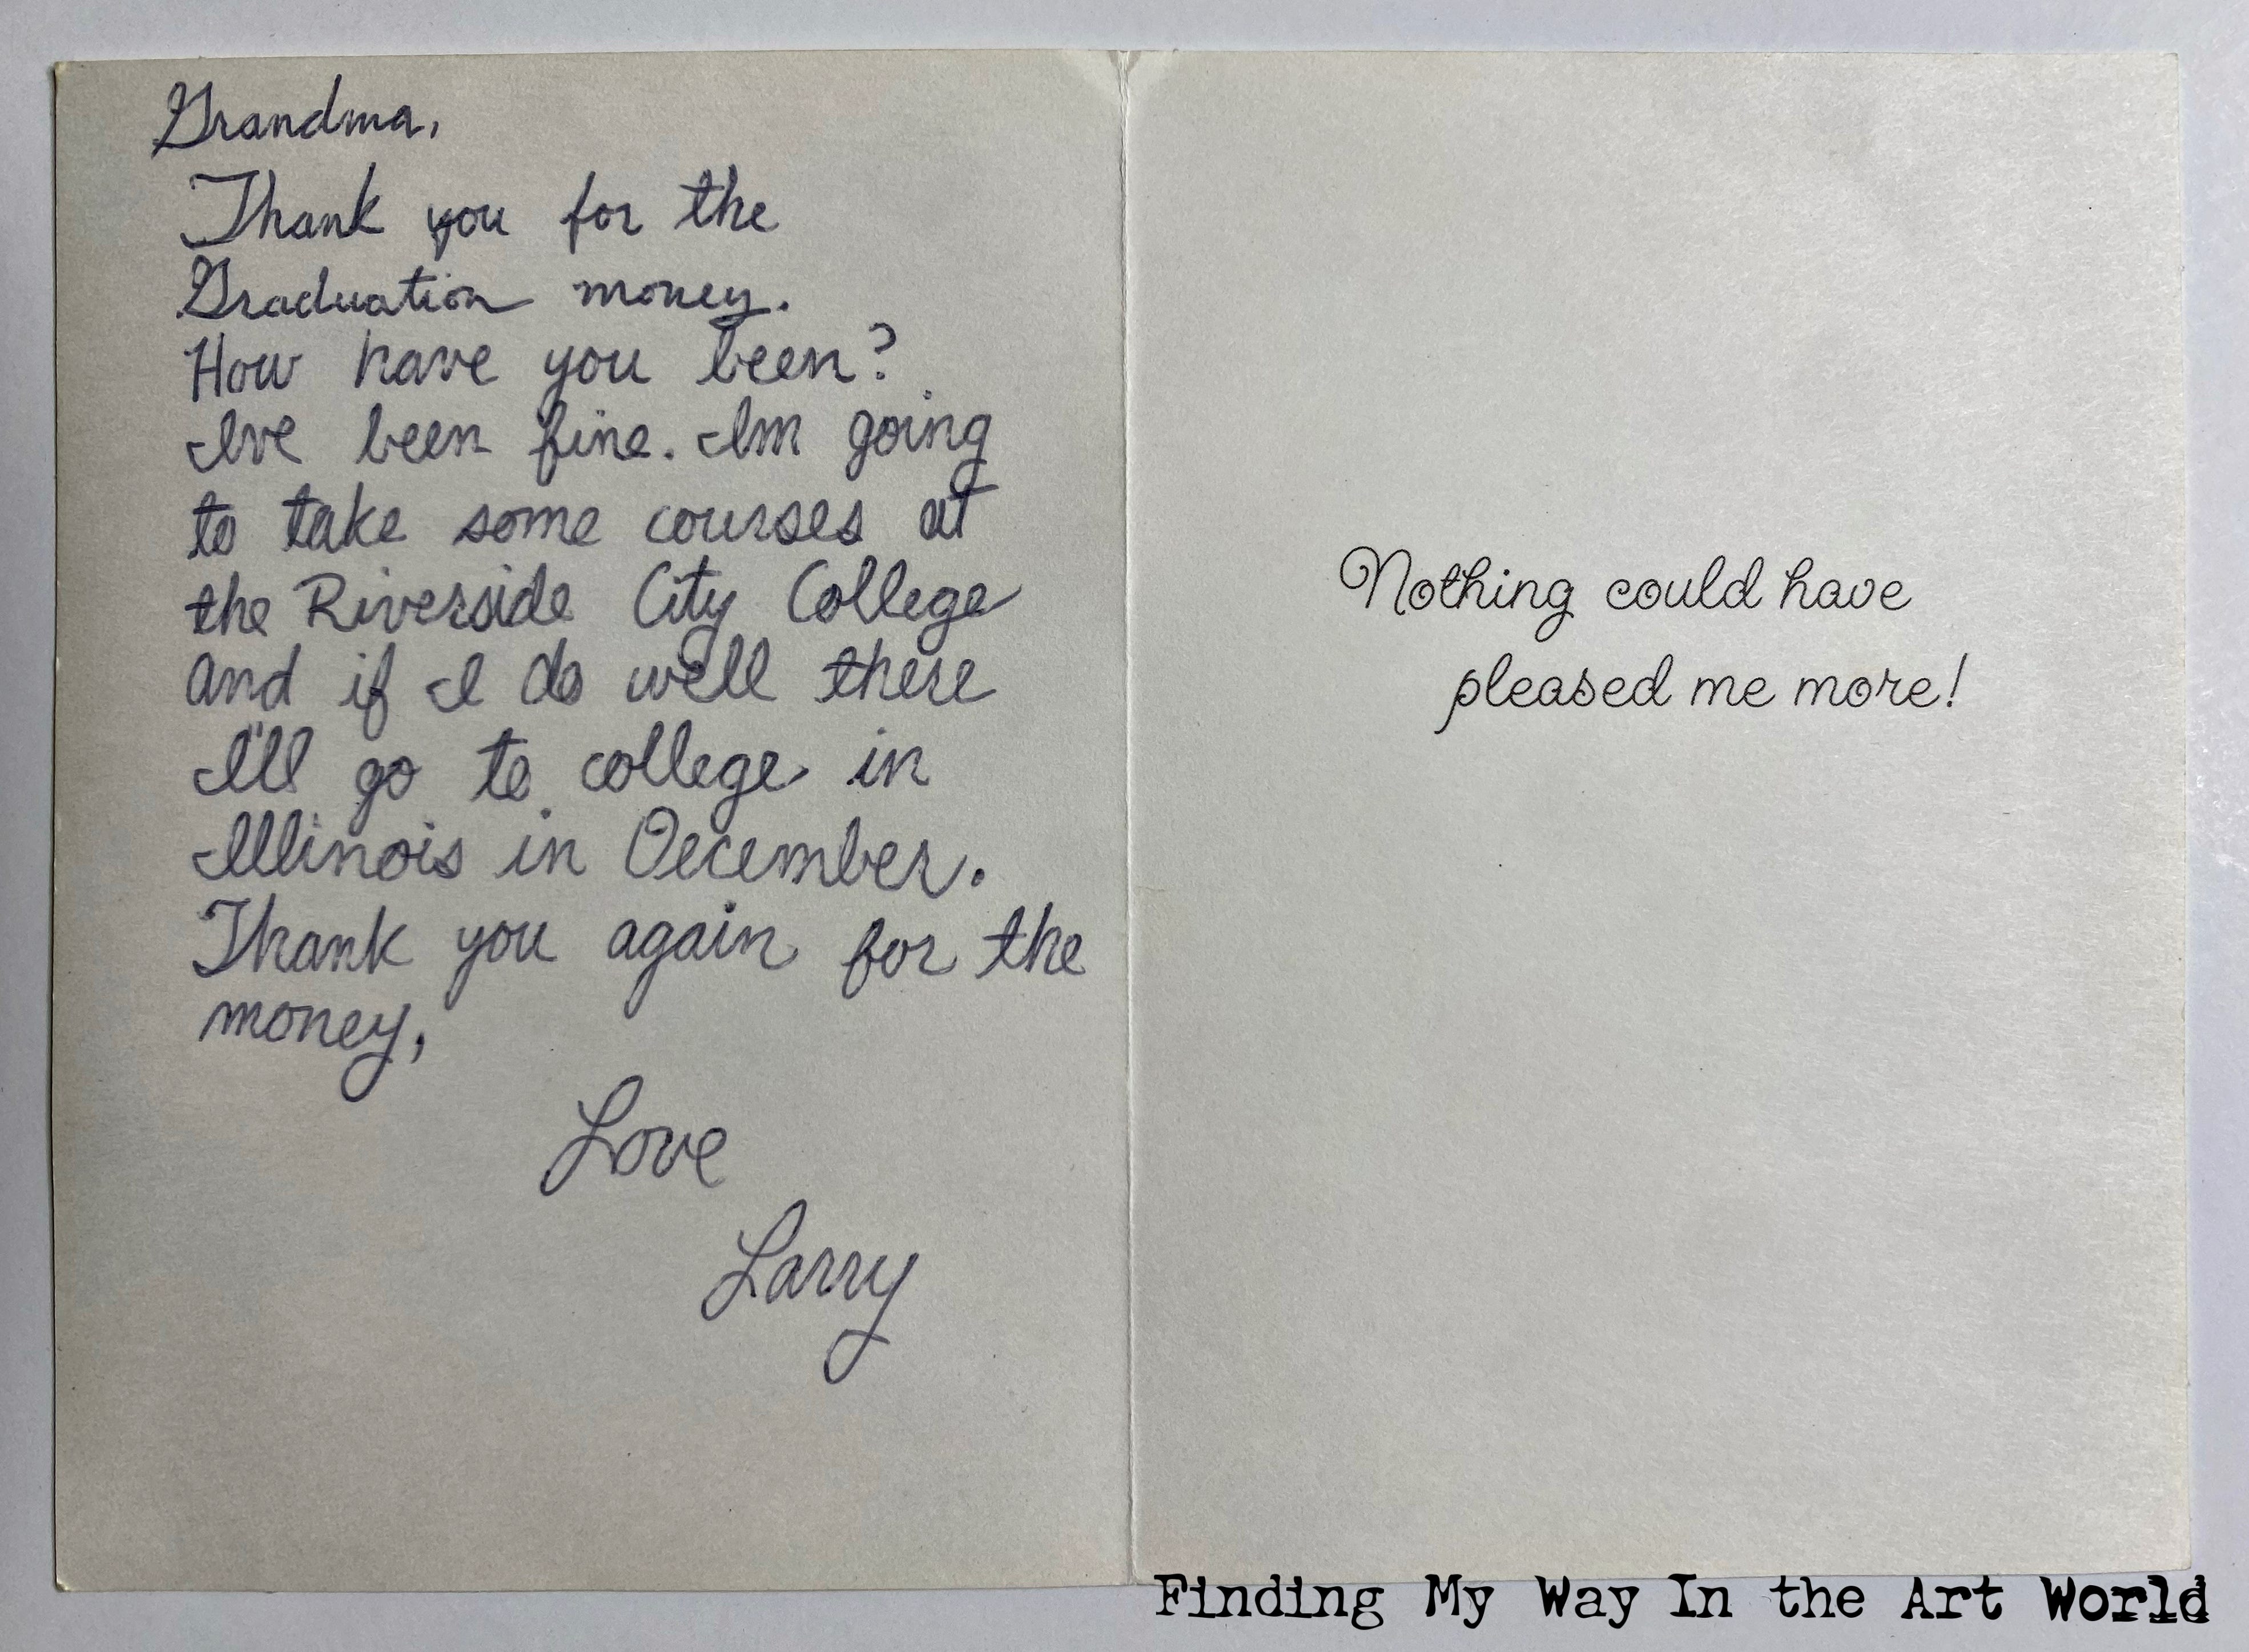 Grandma,
Thank you for the
Graduation money.
How have you been?
Ive been fine. Im going
to take some courses at
the Riverside City College
and if I do well there
I'll go to college in
Illinois in December.
Thank you again for the
money,
Love
Larry
Nothing could have
pleased me more!
Finding My Way In the Art World